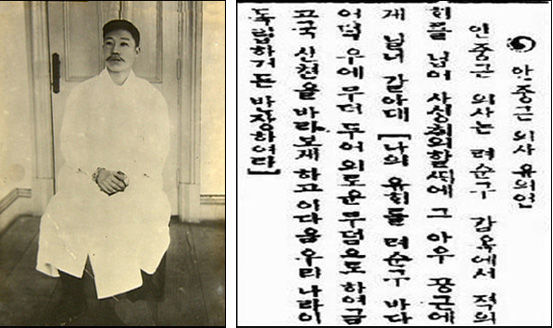 안중근 의사 유의언
안중근 의사는 려순구 감옥에서 적의
를 넘어 사생취의할때에 그 아우 공근에
게 닐너 갈아대 [나의 유해를 려순구 바다
어덕 우에 무더 두어 외로운 무덤으로 하여금
고국 산천을 바라보게 하고 이다음 우리 나라이
독립하거든 반장하여라]